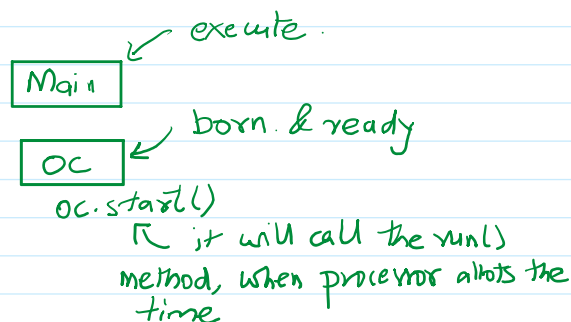 execute.
Main
born. & ready
OC
oc.start()
it will call the run()
method, when processor allots the
time